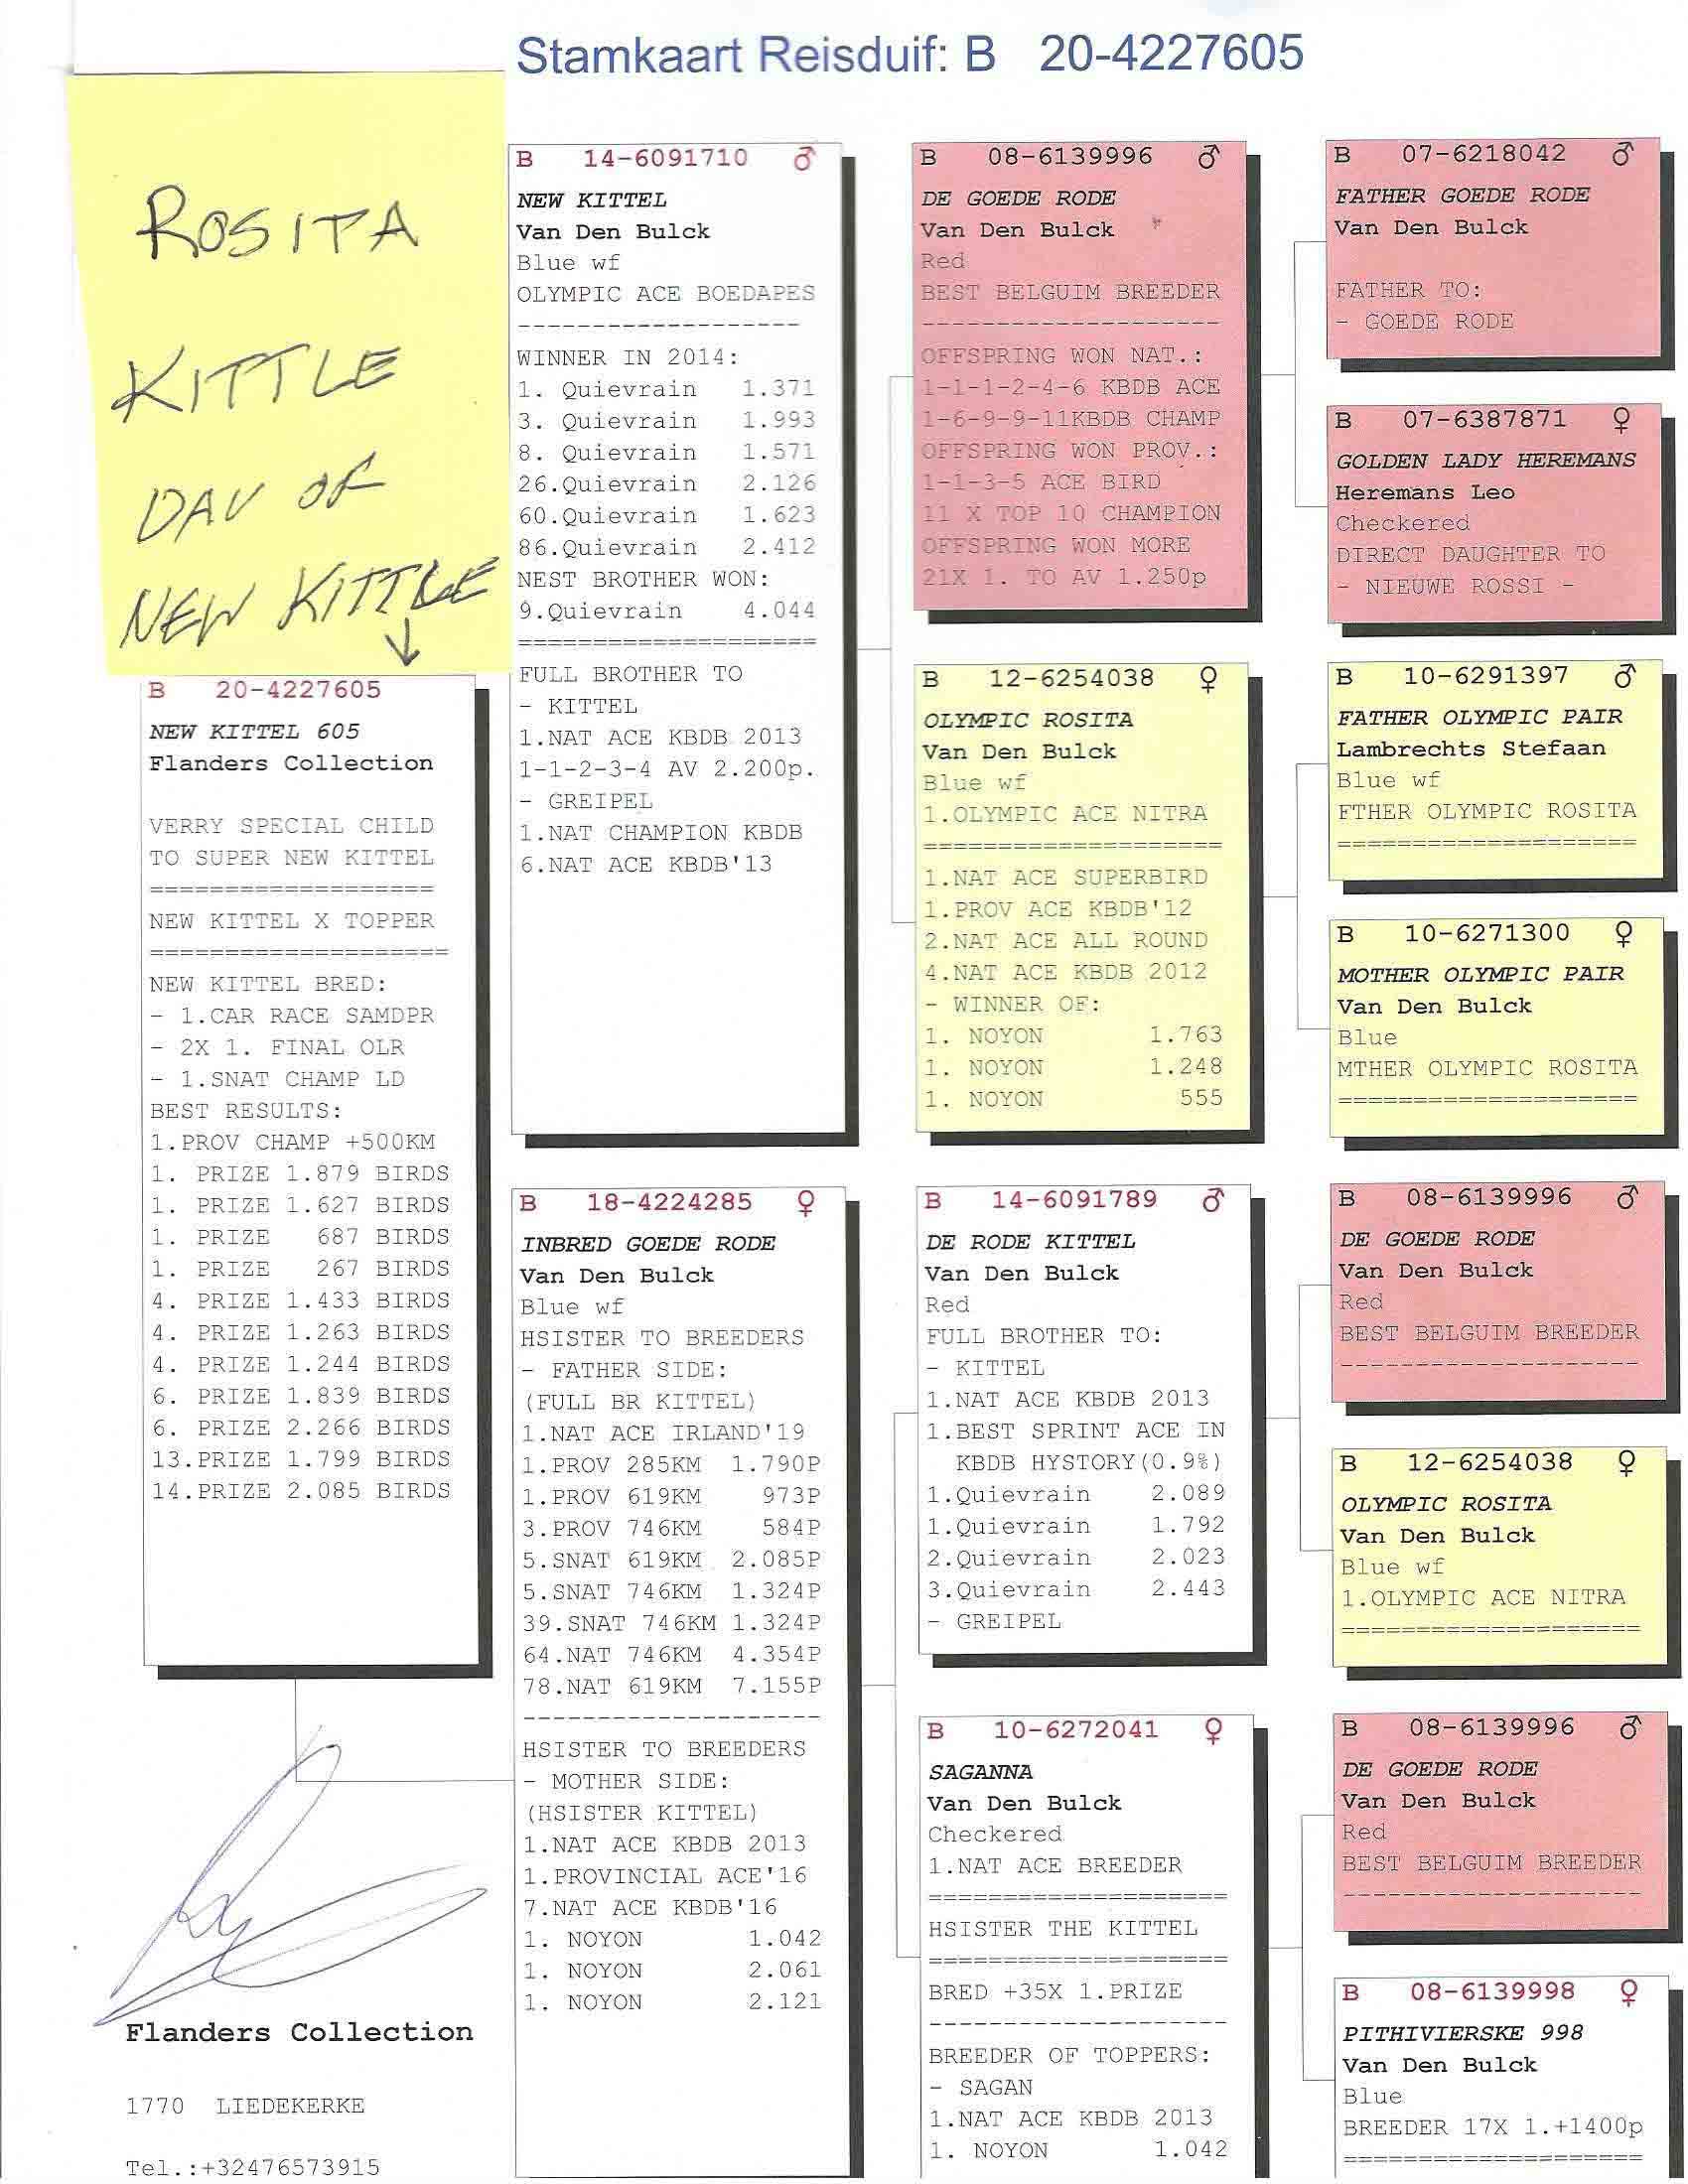 Stamkaart Reisduif: B 20-4227605
ROSITA
KITTLE
DAU OF
NEW KITTLE
B 20-4227605
NEW KITTEL 605
Flanders Collection
VERRY SPECIAL CHILD
TO SUPER NEW KITTEL
===================
NEW KITTEL X TOPPER
====================
NEW KITTEL BRED:
- 1.CAR RACE SAMDPR
- 2X 1. FINAL OLR
- 1.SNAT CHAMP LD
BEST RESULTS:
1.PROV CHAMP +500KM
1. PRIZE 1.879 BIRDS
1. PRIZE 1.627 BIRDS
1. PRIZE 687 BIRDS
1. PRIZE 267 BIRDS
4. PRIZE 1.433 BIRDS
4. PRIZE 1.263 BIRDS
4. PRIZE 1.244 BIRDS
6. PRIZE 1.839 BIRDS
6. PRIZE 2.266 BIRDS
13.PRIZE 1.799 BIRDS
14.PRIZE 2.085 BIRDS
Flanders Collection
1770 LIEDEKERKE
Tel.:+32476573915
B 14-6091710 ♂
NEW KITTEL
Van Den Bulck
Blue wf
OLYMPIC ACE BOEDAPES
-------------------
WINNER IN 2014:
1. Quievrain 1.371
3. Quievrain 1.993
8. Quievrain 1.571
26.Quievrain 2.126
60.Quievrain 1.623
86.Quievrain 2.412
NEST BROTHER WON:
9.Quievrain 4.044
====================
FULL BROTHER TO
- KITTEL
1.NAT ACE KBDB 2013
1-1-2-3-4 AV 2.200p.
- GREIPEL
1.NAT CHAMPION KBDB
6.NAT ACE KBDB'13
B 18-4224285 ♀
INBRED GOEDE RODE
Van Den Bulck
Blue wf
HSISTER TO BREEDERS
- FATHER SIDE:
(FULL BR KITTEL)
1.NAT ACE IRLAND'19
1.PROV 285KM 1.790P
1.PROV 619KM 973P
3.PROV 746KM 584P
5.SNAT 619KM 2.085P
5.SNAT 746KM 1.324P
39.SNAT 746KM 1.324P
64.NAT 746KM 4.354P
78.NAT 619KM 7.155P
--------------------
HSISTER TO BREEDERS
- MOTHER SIDE:
(HSISTER KITTEL)
1.NAT ACE KBDB 2013
1.PROVINCIAL ACE'16
7.NAT ACE KBDB'16
1. NOYON 1.042
1. NOYON 2.061
1. NOYON 2.121
B 08-6139996 ♂
DE GOEDE RODE
Van Den Bulck
Red
BEST BELGUIM BREEDER
--------------------
OFFSPRING WON NAT.:
1-1-1-2-4-6 KBDB ACE
1-6-9-9-11KBDB CHAMP
OFFSPRING WON PROV.:
1-1-3-5 ACE BIRD
11 X TOP 10 CHAMPION
OFFSPRING WON MORE
21X 1. TO AV 1.250p
B 12-6254038 ♀
OLYMPIC ROSITA
Van Den Bulck
Blue wf
1.OLYMPIC ACE NITRA
====================
1.NAT ACE SUPERBIRD
1.PROV ACE KBDB'12
2.NAT ACE ALL ROUND
4.NAT ACE KBDB 2012
- WINNER OF:
1. NOYON 1.763
1. NOYON 1.248
1. NOYON 555
B 14-6091789 ♂
DE RODE KITTEL
Van Den Bulck
Red
FULL BROTHER TO:
- KITTEL
1.NAT ACE KBDB 2013
1.BEST SPRINT ACE IN
KBDB HYSTORY(0.9%)
1.Quievrain 2.089
1.Quievrain 1.792
2.Quievrain 2.023
3.Quievrain 2.443
- GREIPEL
B 10-6272041 ♀
SAGANNA
Van Den Bulck
Checkered
1.NAT ACE BREEDER
====================
HSISTER THE KITTEL
====================
BRED +35X 1.PRIZE
--------------------
BREEDER OF TOPPERS:
- SAGAN
1.NAT ACE KBDB 2013
1. NOYON 1.042
B 07-6218042 ♂
FATHER GOEDE RODE
Van Den Bulck
FATHER TO:
- GOEDE RODE
B 07-6387871 ♀
GOLDEN LADY HEREMANS
Heremans Leo
Checkered
DIRECT DAUGHTER TO
- NIEUWE ROSSI -
B 10-6291397 ♂
FATHER OLYMPIC PAIR
Lambrechts Stefaan
Blue wf
FTHER OLYMPIC ROSITA
====================
B 10-6271300 ♀
MOTHER OLYMPIC PAIR
Van Den Bulck
Blue
MTHER OLYMPIC ROSITA
====================
B 08-6139996 ♂
DE GOEDE RODE
Van Den Bulck
Red
BEST BELGUIM BREEDER
--------------------
B 12-6254038 ♀
OLYMPIC ROSITA
Van Den Bulck
Blue wf
1.OLYMPIC ACE NITRA
====================
B 08-6139996 ♂
DE GOEDE RODE
Van Den Bulck
Red
BEST BELGUIM BREEDER
--------------------
B 08-6139998 ♀
PITHIVIERSKE 998
Van Den Bulck
Blue
BREEDER 17X 1.+1400p
====================